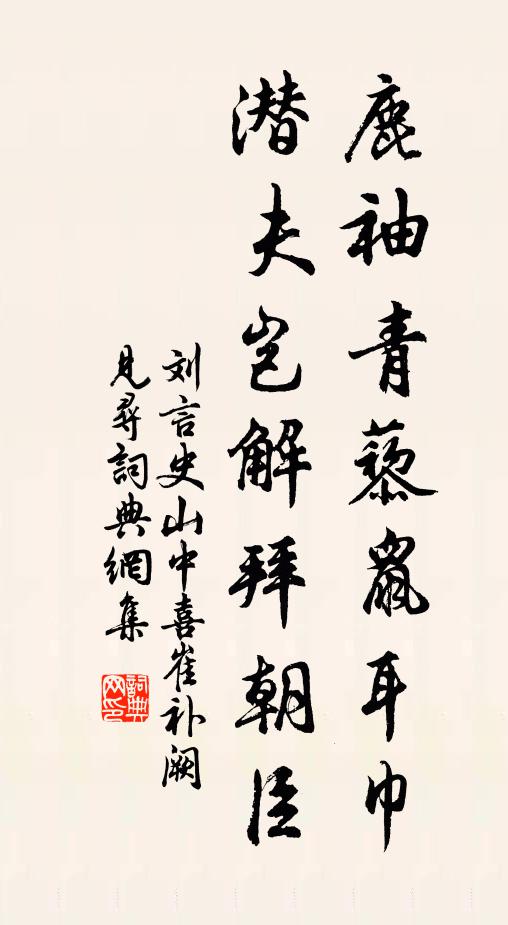 鹿袖青藜鼠耳巾
潜夫岂解拜朝臣
刘言史山中喜崔补阙
见寻詞典網集
詞典网印